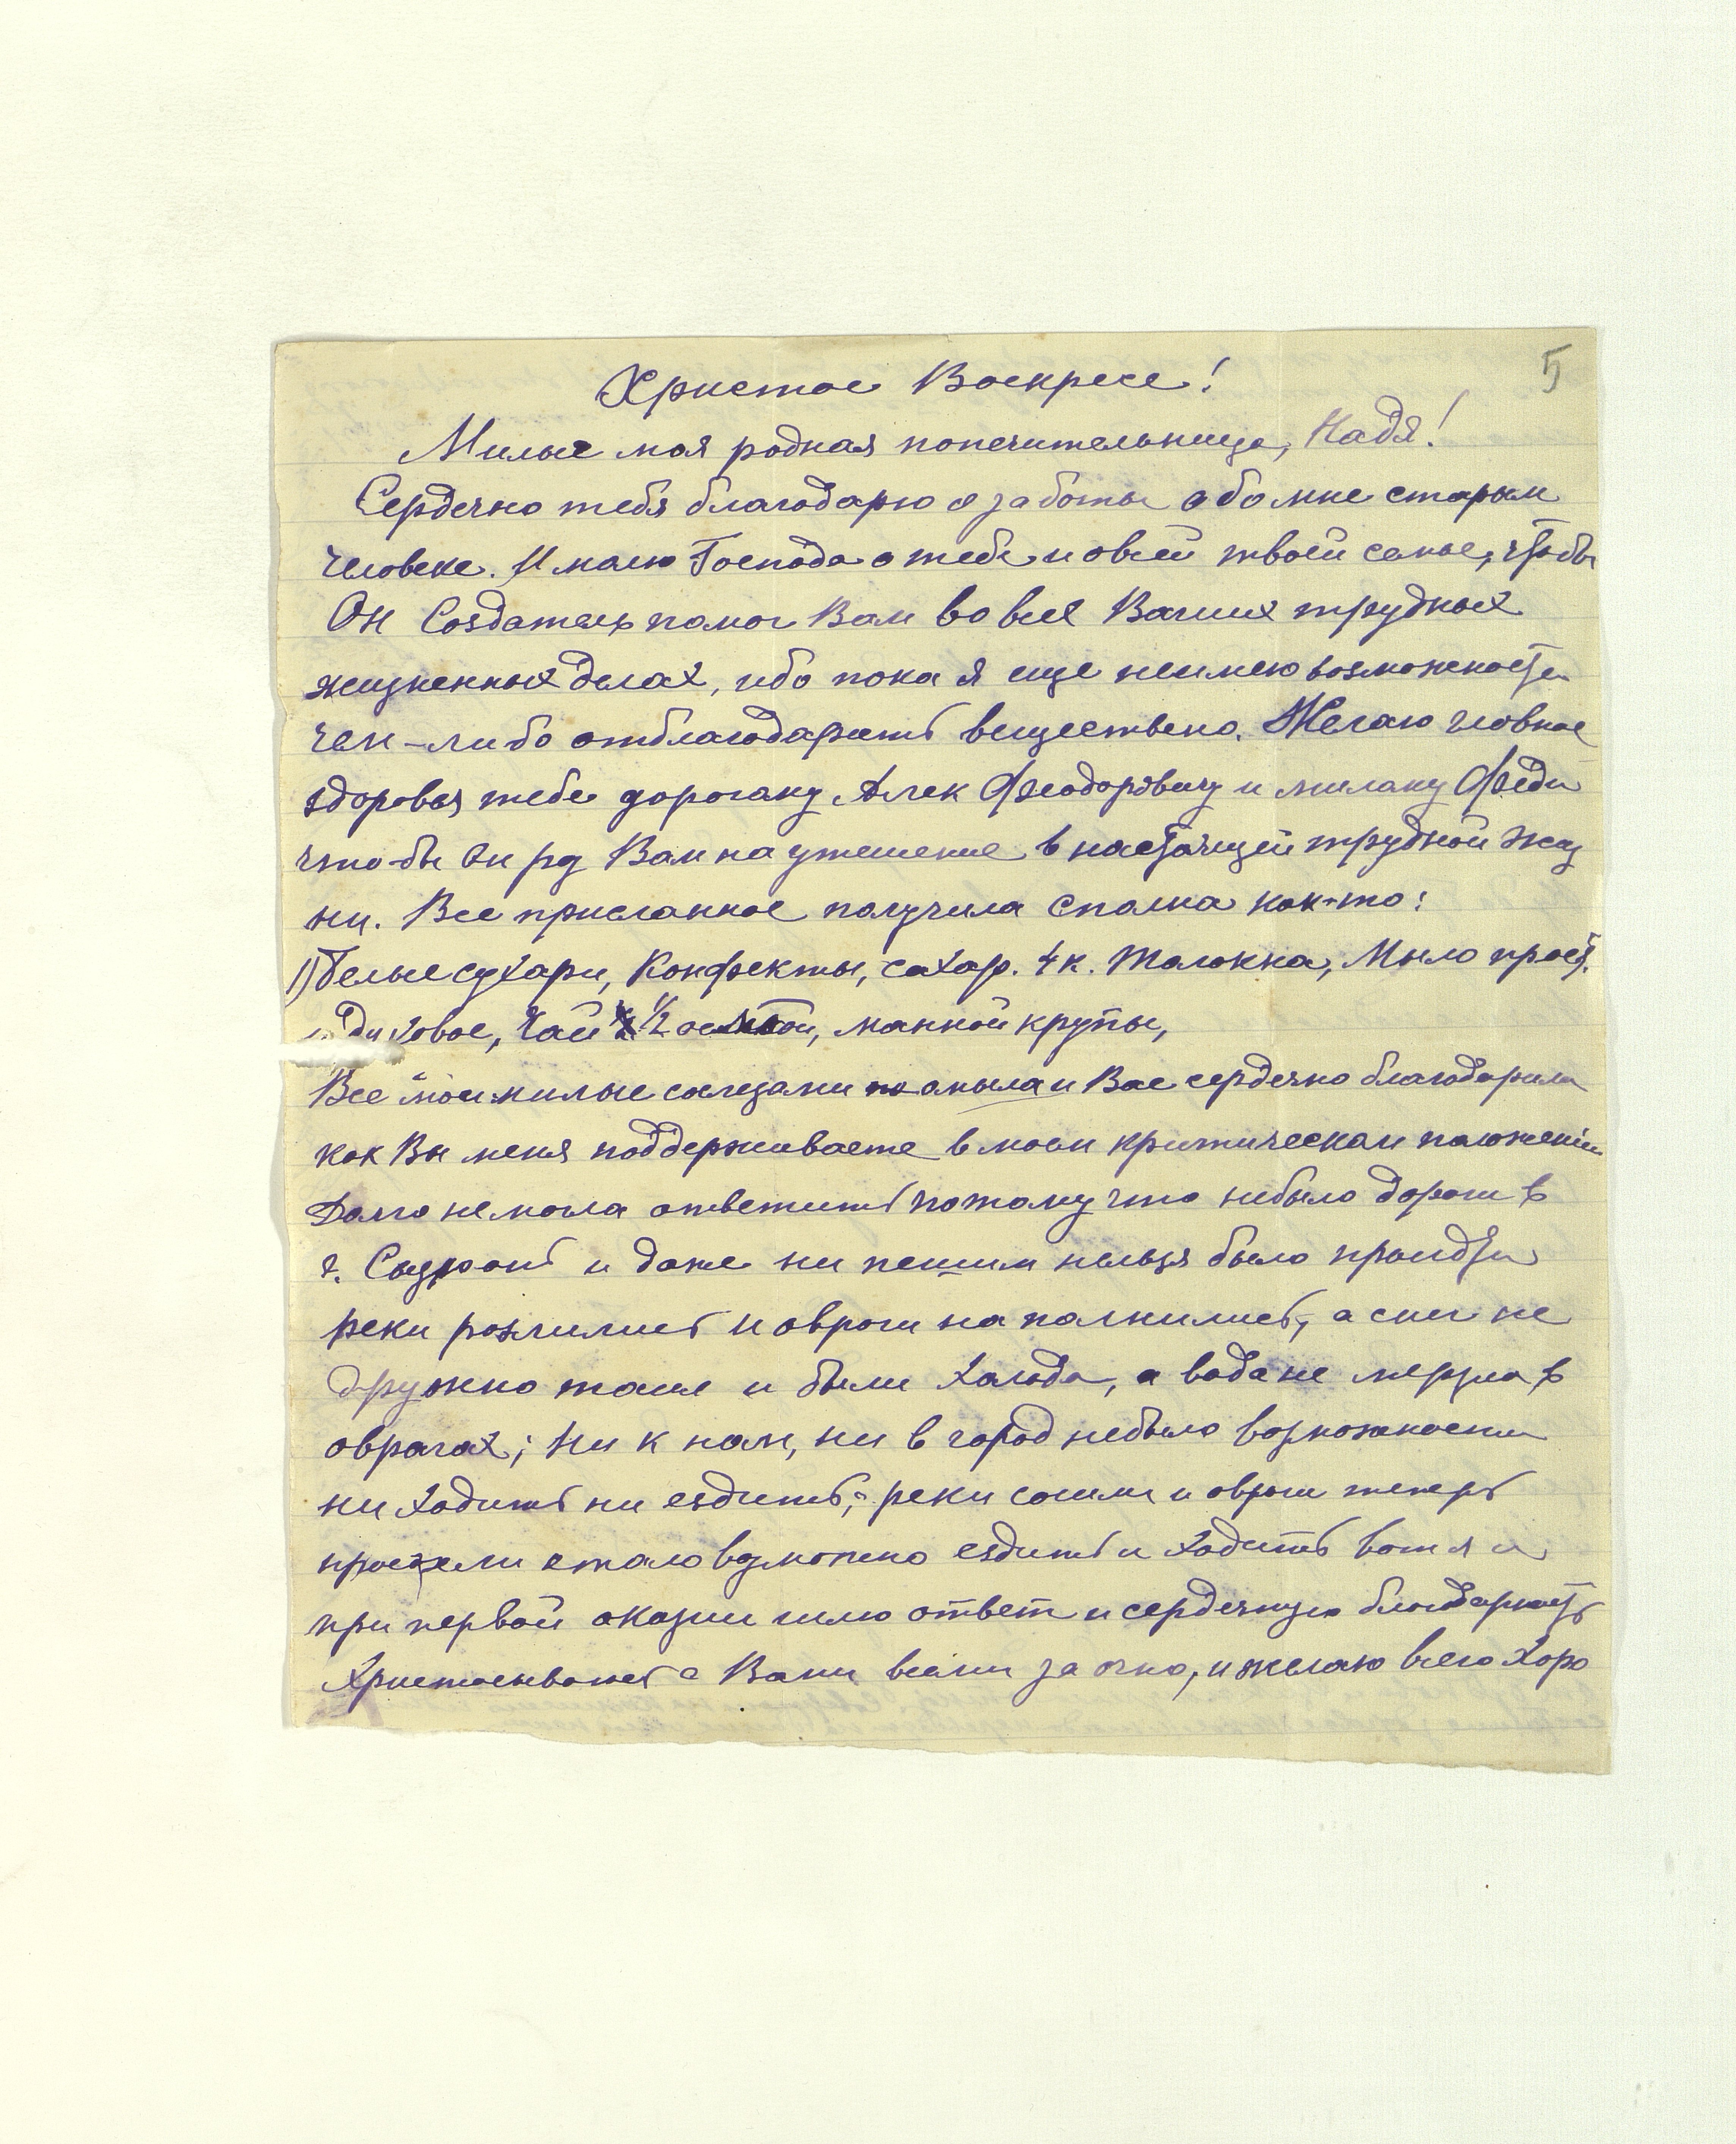 5
Христос Воскресе!
Милая моя родная попечительница, Надя!
Сердечно тебя благодарю о заботы обо мне старом
человеке. И молю Господа о тебе и о всей твоей семье, чтобы
Он Создатель помог Вам во всех Ваших трудных
жизненных делах, ибо пока я еще неимею возможности
чем-либо отблагодарить вещественно. Желаю главное
здоровья тебе дорогому Алек Феодоровичу и милому Феди
что-бы он рд Вам на утешение в настоящей трудной жиз
ни. Все присланное получила сполна как-то:
1) белые сухари, Конфекты, сахар. 4 к. Толокна, Мыло прост.
духовое, Чай 1/2 манной крупы,
Все мои милые слезами омыла и Вас сердечно благодарила
как Вы меня поддерживаете в моем критическом положении
Долго не могла ответить потому что небыло дороги в
г. Сызрань и даже ни пешим нельзя было пройдти
реки розлились и овраги на полнились, а снег не
дружно таял и были холода, а вода не мерзла в
оврагах; ни к нам, ни в город небыло возможности
ни ходить ни ездить, реки сошли и овраги теперь
проехали стало возможно ездить и ходить вот я и
при первой оказии шлю ответ и сердечную благодарность
Христосываюсь с Вами всеми за очно, и желаю всего Хоро